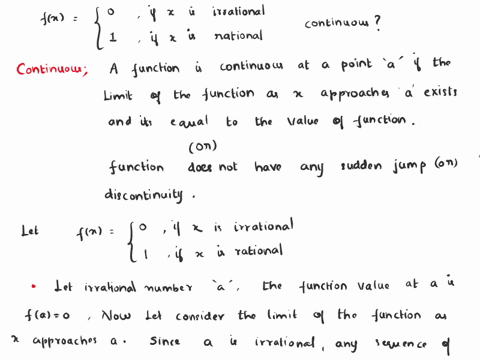 f(x) = { 0 , if x is irrational
1 , if x is rational continuous ?
Continuous; A function is continuous at a point 'a' if the
Limit of the function as x approaches 'a' exists
and its equal to the value of function.
(or)
function does not have any sudden jump (or)
discontinuity.
Let f(x) = { 0 , if x is irrational
1 , if x is rational
• Let irrational number 'a'. The function value at a is
f(a)=0 , Now Let consider the limit of the function as
x approaches a. Since a is irrational, any sequence of